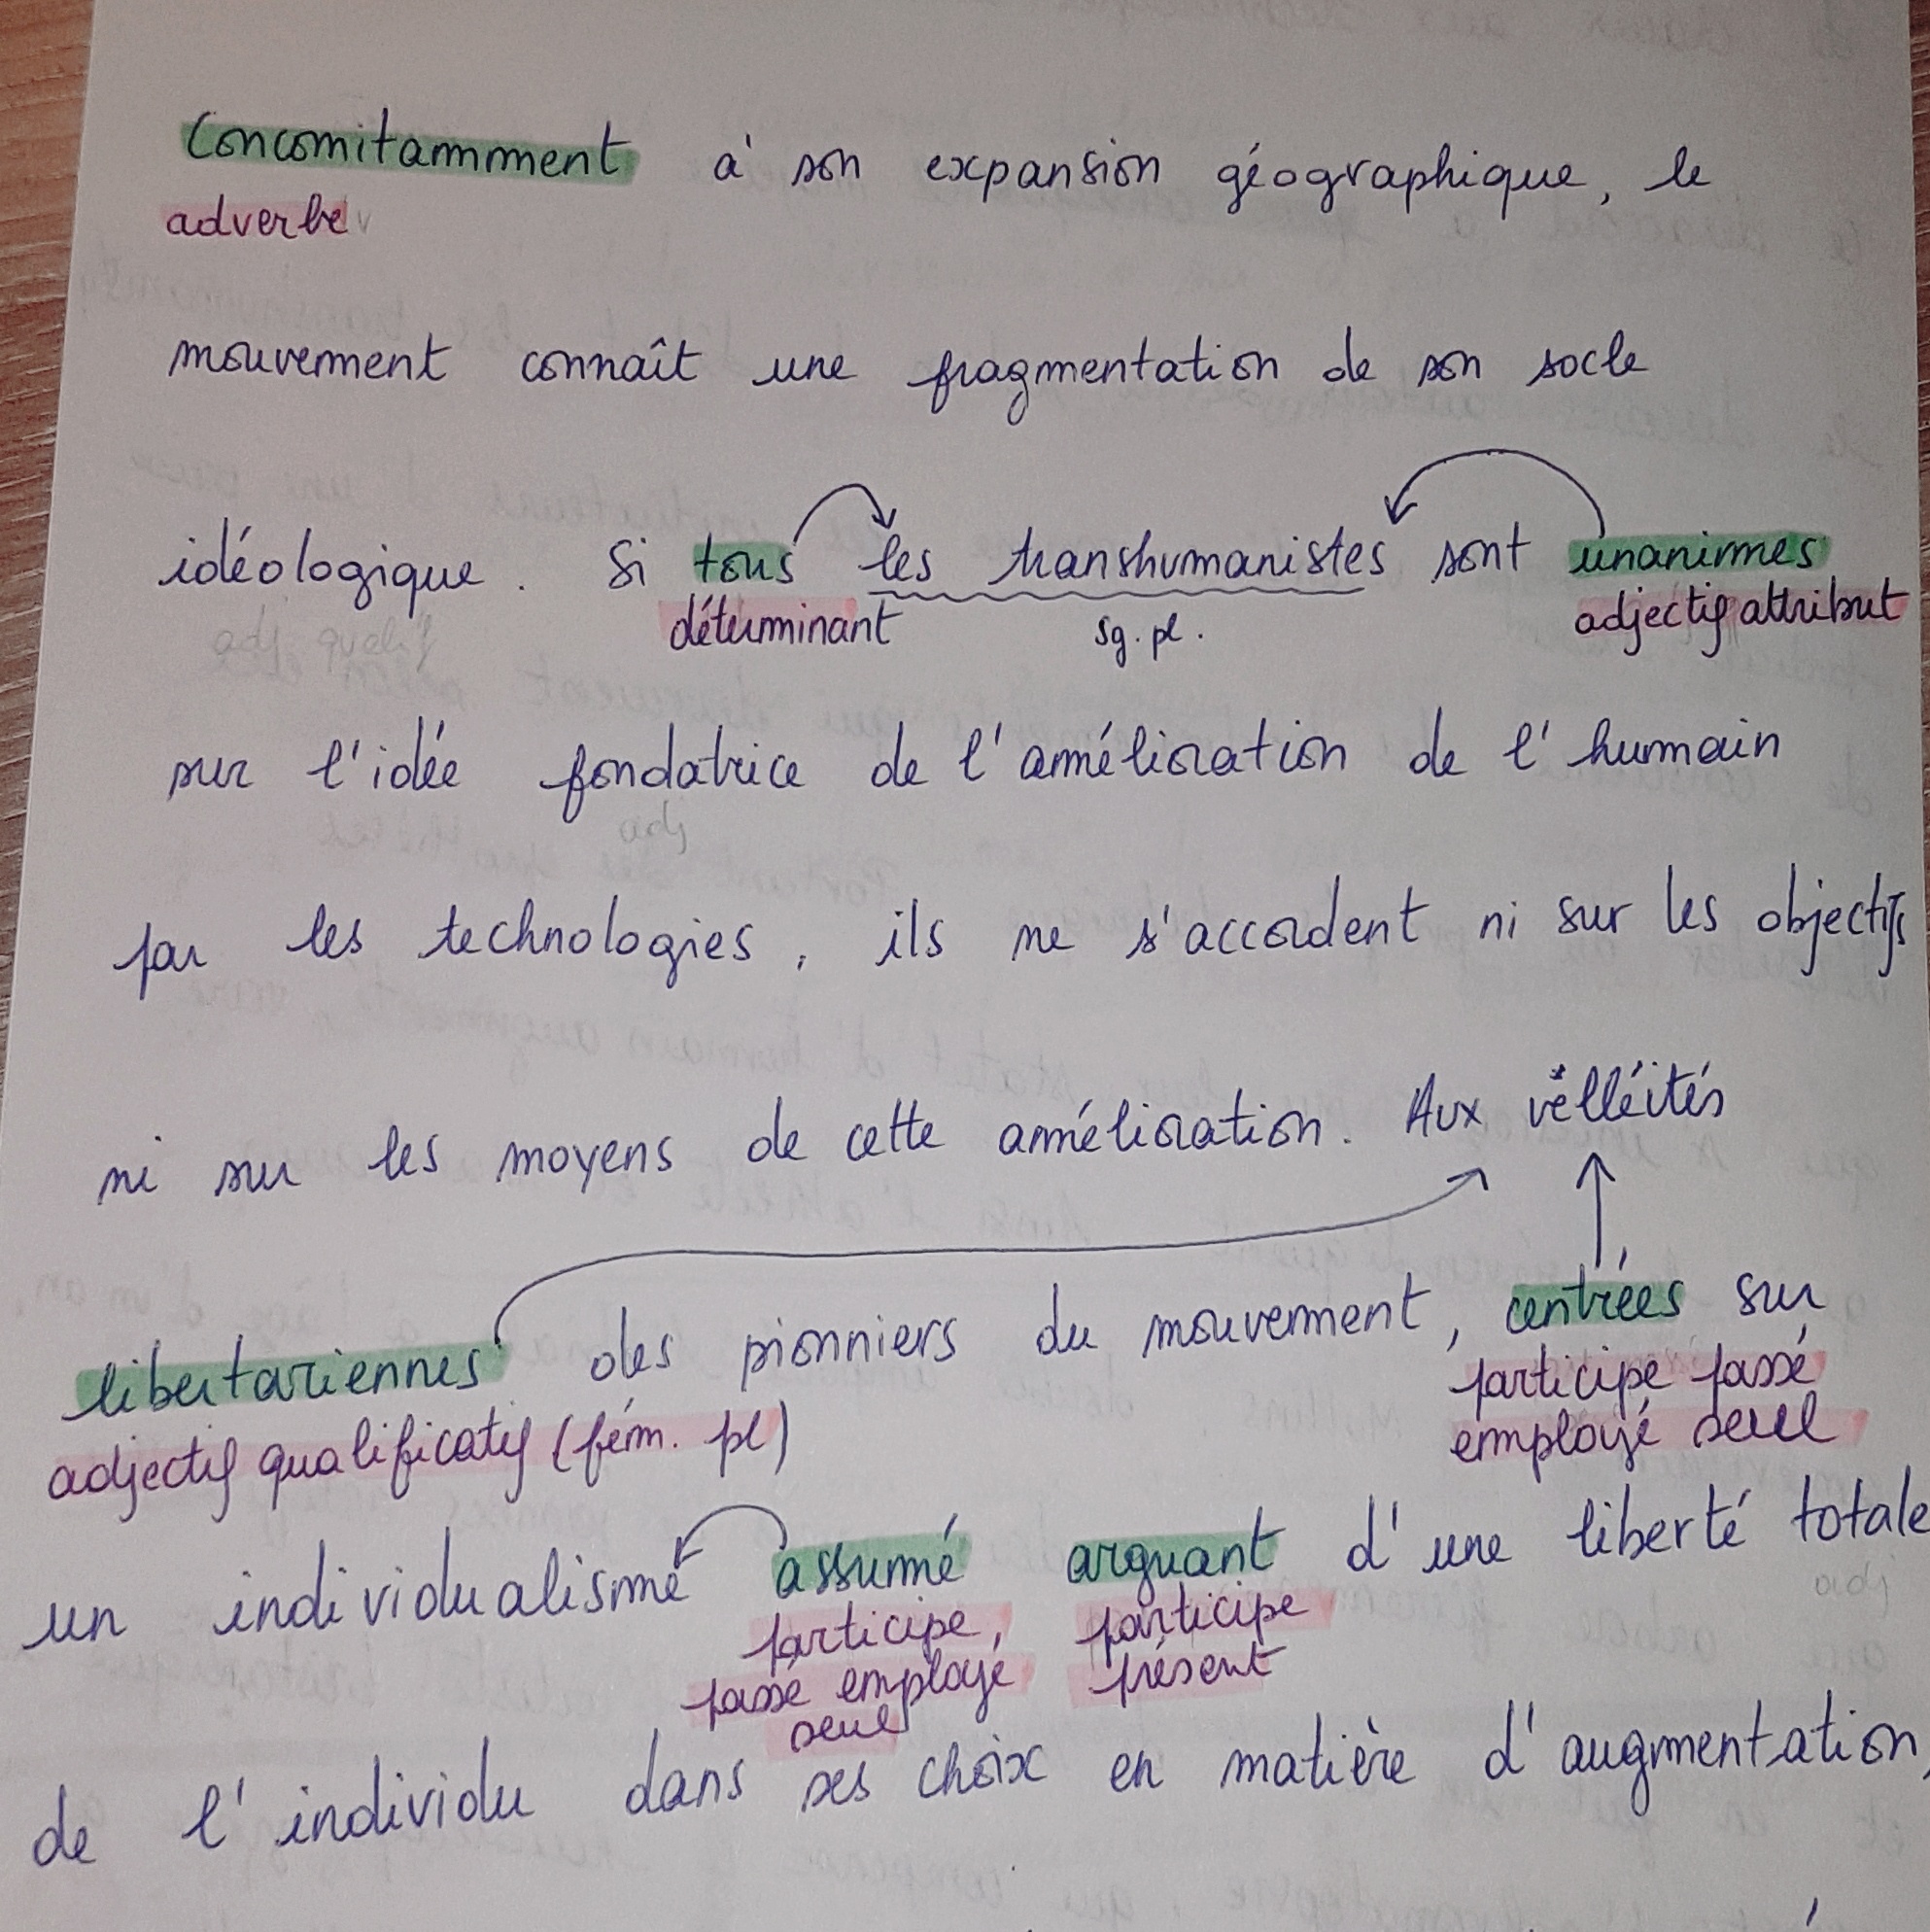 Concomitammment à son expansion géographique, le
adverbe
mouvement connaît une fragmentation de son socle
idéologique. Si tous les transhumanistes sont unanimes
déterminant sg. pl. adjectif attribut
sur l'idée fondatrice de l'amélioration de l'humain
adj
par les technologies, ils ne s'accordent ni sur les objectifs
ni sur les moyens de cette amélioration. Aux velléités
libertariennes des pionniers du mouvement, centrées sur
adjectif qualificatif (fém. pl) participe passé
employé seul
un individualisme assumé arguant d'une liberté totale
participe participe adj
passé employé présent
seul
de l'individu dans ses choix en matière d'augmentation,